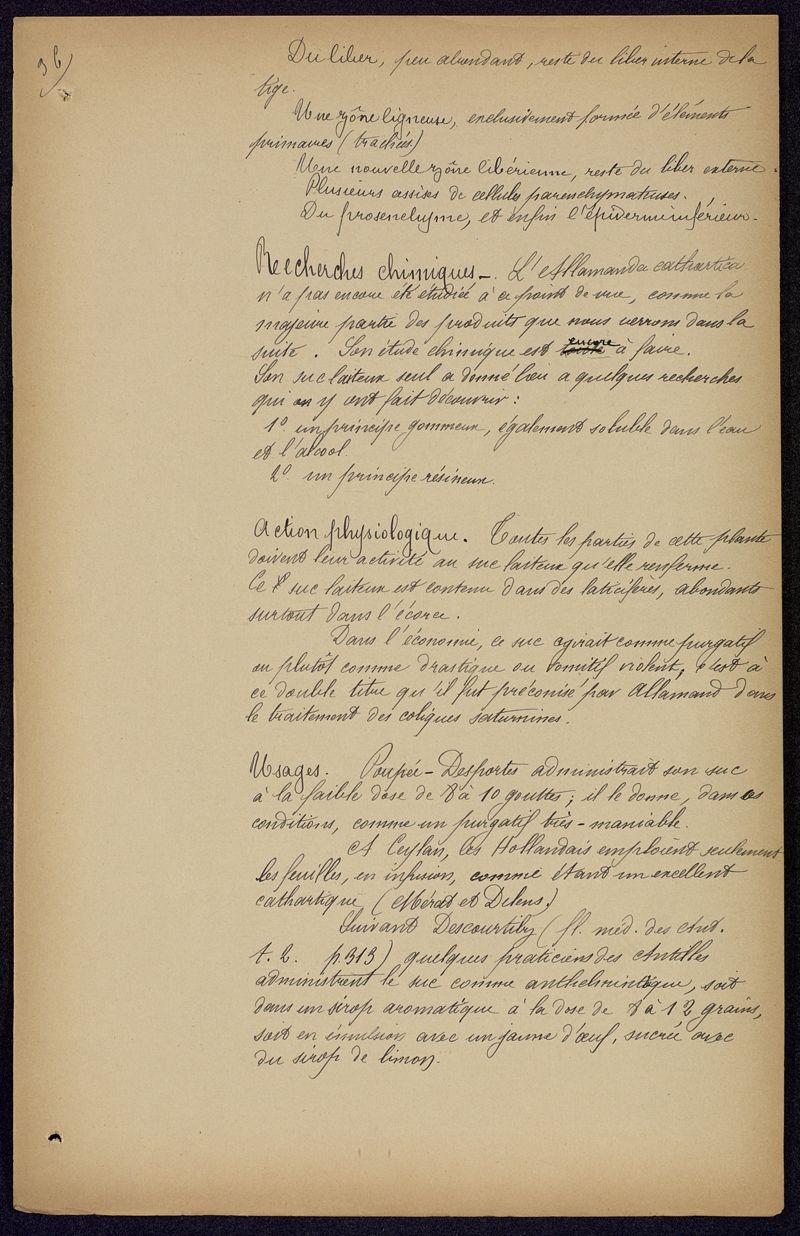 36)
Du liber, peu abondant, reste du liber interne de la
tige.
Une zône ligneuse, exclusivement formée d'éléments
primaires (trachées)
Une nouvelle zône libérienne, reste du liber externe.
Plusieurs assises de cellules parenchymateuses.
Du prosenchyme, et enfin l'épiderme inférieur.
Recherches chimiques_. L'Allamanda cathartica
n'a pas encore été étudiée à ce point de vue, comme la
majeure partie des produits que nous verrons dans la
suite. Son étude chimique est encore à faire.
Son suc laiteux seul a donné lieu a quelques recherches
qui on y ont fait découvrir :
1º un principe gommeux, également soluble dans l'eau
et l'alcool.
2º un principe résineux.
Action physiologique. Toutes les parties de cette plante
doivent leur activité au suc laiteux qu'elle renferme.
Ce suc laiteux est contenu dans des laticifères, abondants
surtout dans l'écorce.
Dans l'économie, ce suc agirait comme purgatif
ou plutôt comme drastique ou vomitif violent, c'est à
ce double titre qu'il fut préconisé par Allamand dans
le traitement des coliques saturnines.
Usages. Poupée-Desportes administrait son suc
à la faible dose de 8 à 10 gouttes ; il le donne, dans ces
conditions, comme un purgatif très-maniable.
A Ceylan, les Hollandais emploient seulement
les feuilles, en infusion, comme étant un excellent
cathartique (Mérat et Delens.)
Suivant Descourtilz (fl. méd. des Ant.
t. 2. p.313) quelques praticiens des Antilles
administrent le suc comme anthelmintique, soit
dans un sirop aromatique à la dose de 8 à 12 grains,
soit en émulsion avec un jaune d'œuf, sucrée avec
du sirop de limon.